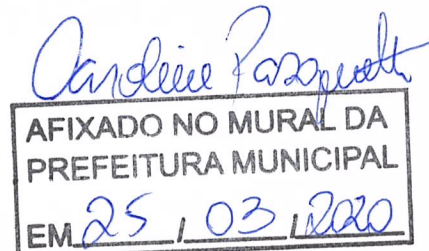 Caroline
AFIXADO NO MURAL DA
PREFEITURA MUNICIPAL
EM 25 / 03 / 2020